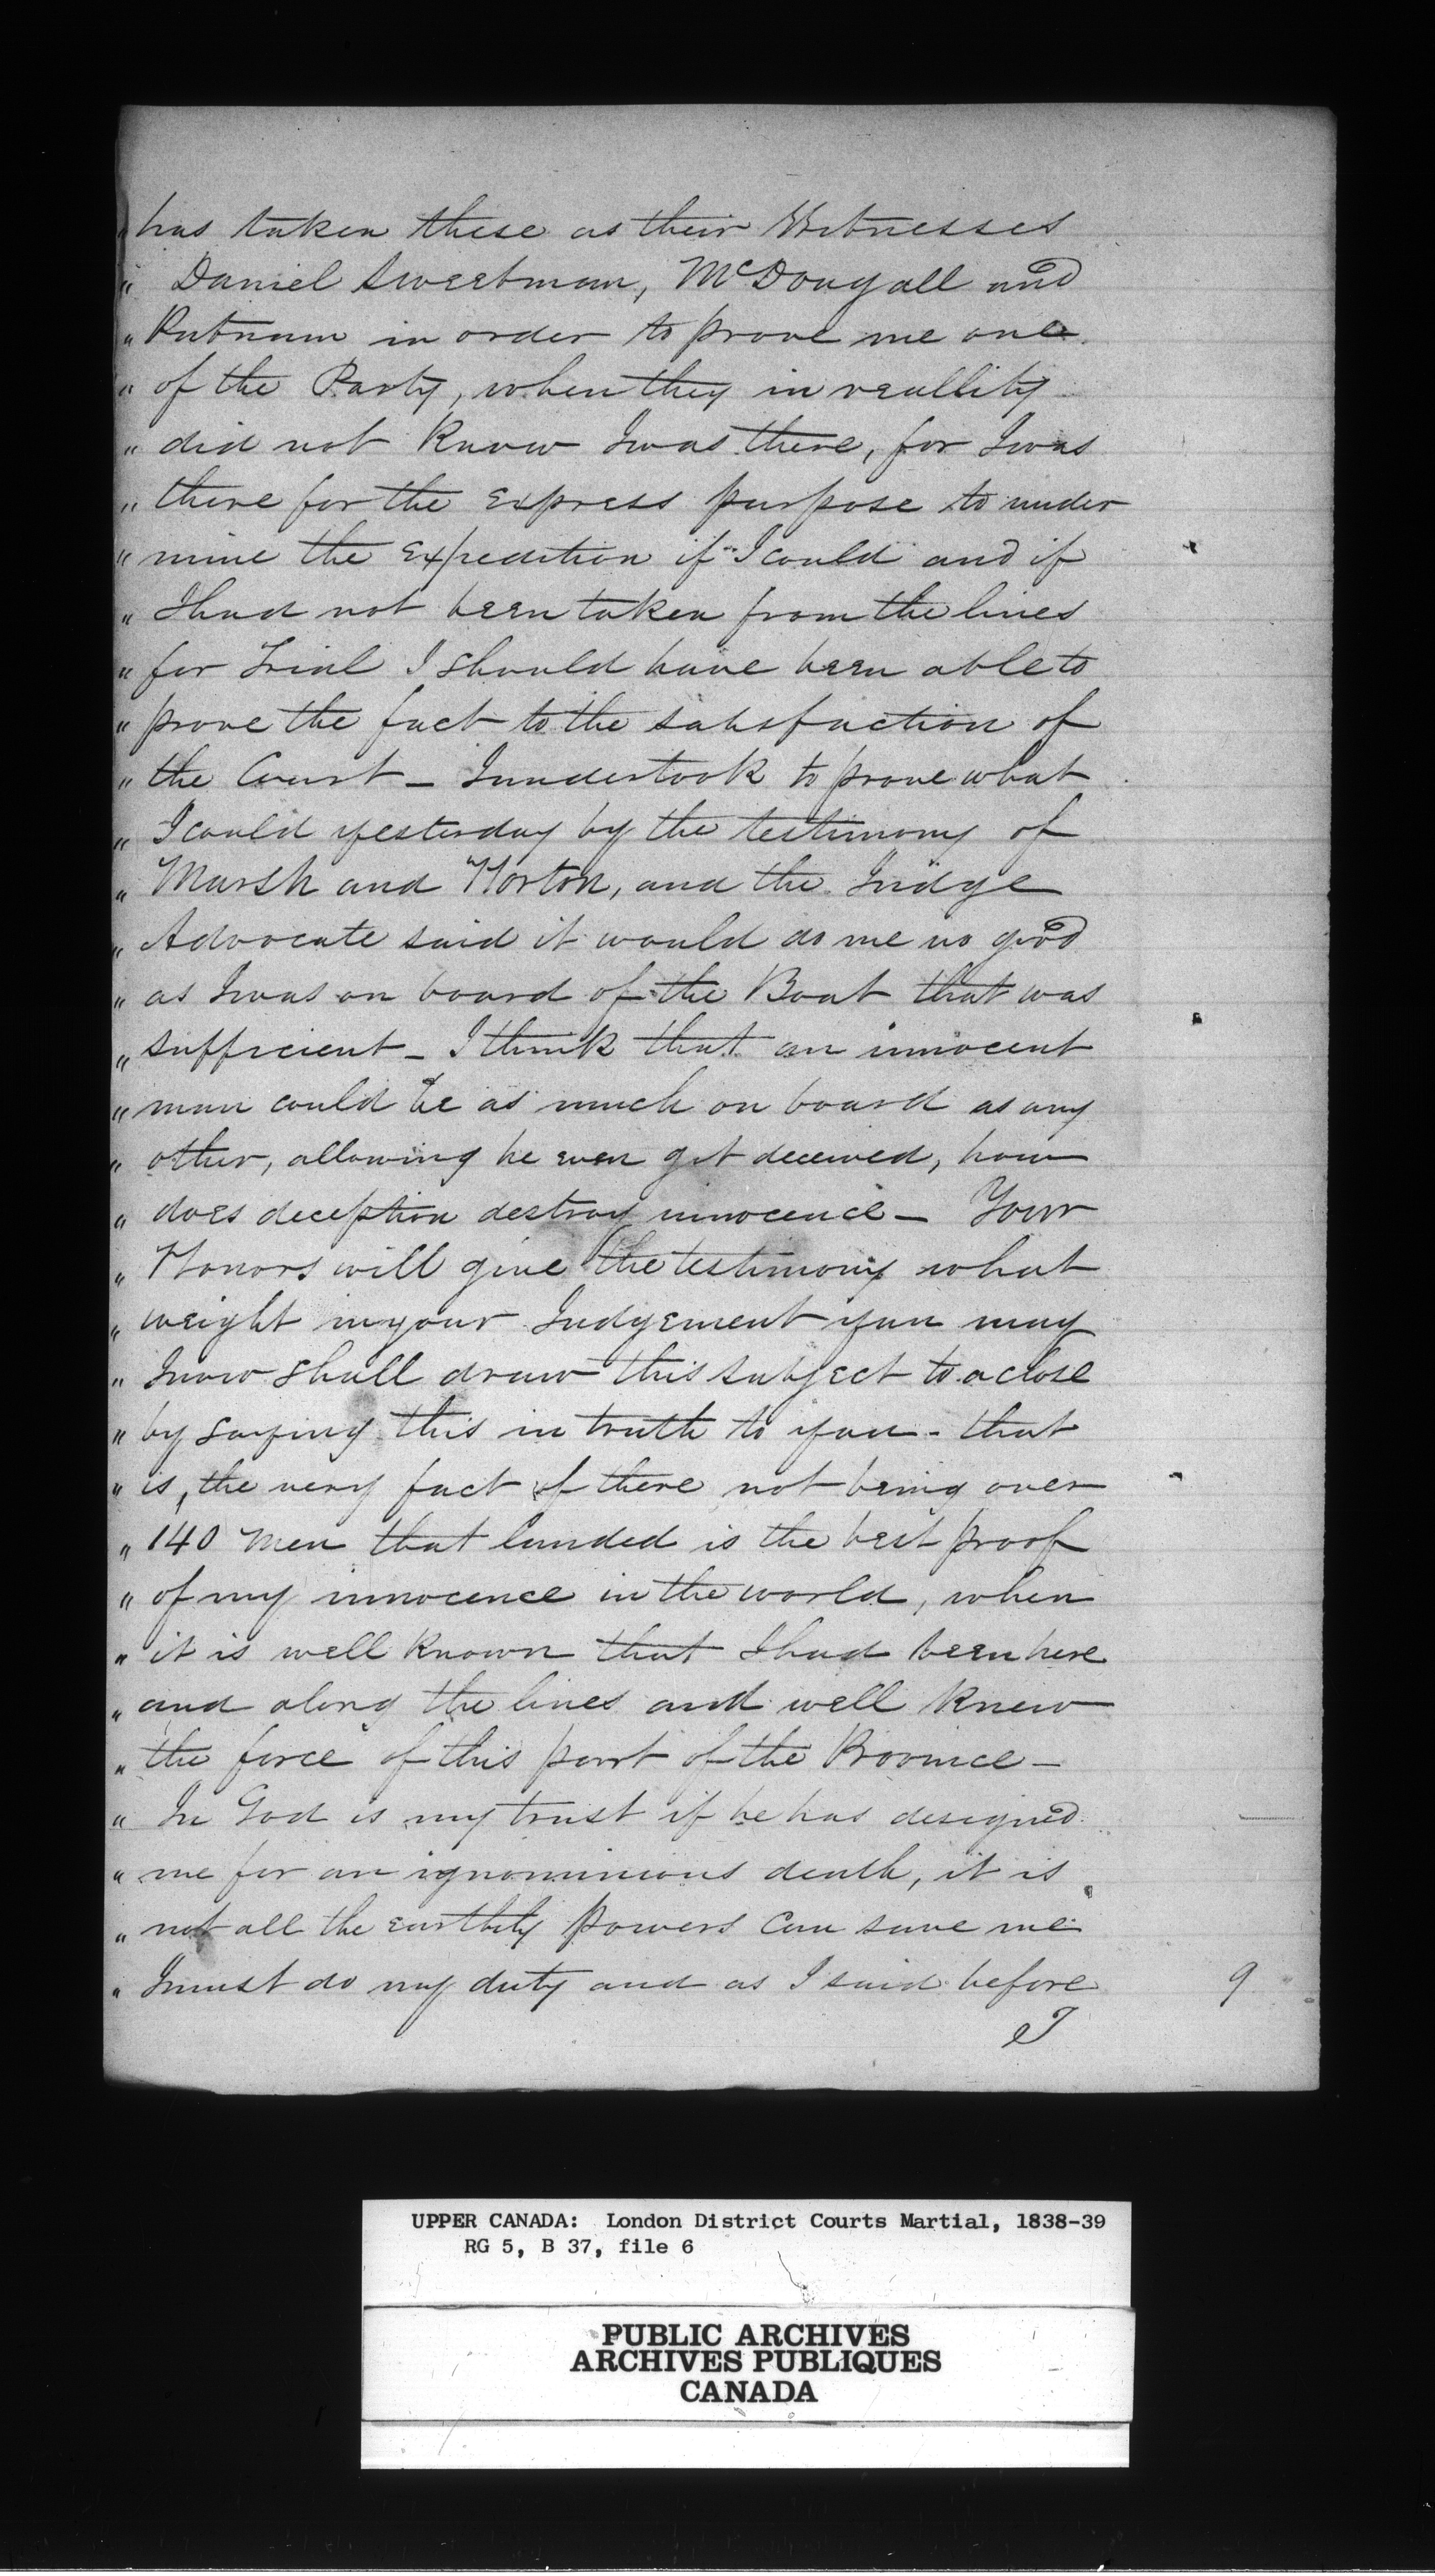 " has taken these as their Witnesses
" Daniel Sweetman, McDougall and
" Putnam in order to prove me one
" of the Party, when they in reallity
" did not know I was there, for I was
" there for the express purpose to under
" mine the Expedition if I could and if
" I had not been taken from the lines
" for Trial I should have been able to
" prove the fact to the satisfaction of
" the Court – I undertook to prove what
" I could yesterday by the testimony of
" Marsh and Horton, and the Judge
" Advocate said it would do me no good
" as I was on board of the Boat that was
" sufficient – I think that an innocent
" man could be as much on board as any
" other, allowing he even get deceived, how
" does deception destroy innocence – Your
" Honors will give the testimony what
" weight in your Judgement you may
" I now shall draw this subject to a close
" by saying this in truth to you - that
" is, the very fact of there not being over
" 140 men that landed is the best proof
" of my innocence in the world, when
" it is well known that I had been here
" and along the lines and well knew
" the force of this part of the Province –
" In God is my trust if he has designed
" me for an ignominious death, it is
" not all the earthly powers can save me
" I must do my duty and as I said before
9
I
UPPER CANADA: London District Courts Martial, 1838-39
RG 5, B 37, file 6
PUBLIC ARCHIVES
ARCHIVES PUBLIQUES
CANADA